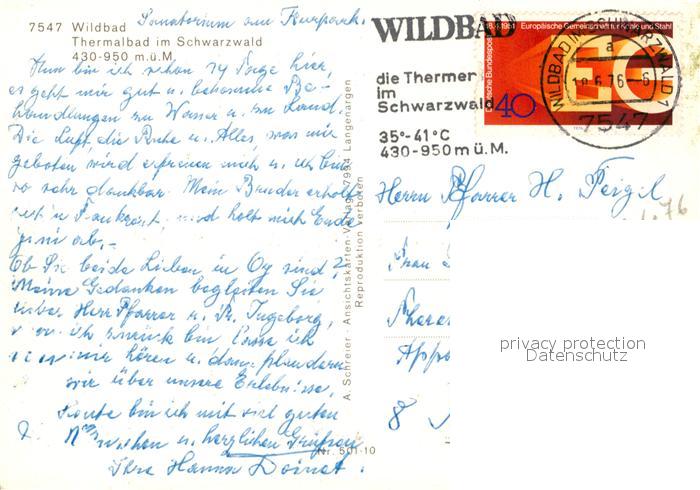 Sanatorium am Kurpark.
7547 Wildbad
Thermalbad im Schwarzwald
430-950 m.ü.M.
Nun bin ich schon 14 Tage hier,
es geht mir gut u. bekomme Be-
handlungen zu Wasser u. zu Land.
Die Luft, die Ruhe u. Alles, was mir
geboten wird erfreuen mich u. ich bin
so sehr dankbar. Mein Bruder erholt
und holt mich Ende
Juni ab,-
Ob Sie beide Lieben in sind?
Meine Gedanken begleiten Sie
lieber Herr Pfarrer u. Ingeborg,
ich zurück bin
mir hören u. dann plaudern
wir über unsere Erlebnisse,
Heute bin ich mit viel guten
Wünschen u. herzlichen Grüssen
Ihre Hanna
A. Schreier - Ansichtskarten-Verlag, 7994 Langenargen
Reproduktion verboten
Nr. 501-10
WILDBAD
die Thermen
im
Schwarzwald
35°-41°C
430-950 m ü.M.
18.4.1951 Europäische Gemeinschaft für Kohle und Stahl
Deutsche Bundespost
40
WILDBAD IM SCHWARZWALD 1
a
18.6.76-6
7547
Herrn Pfarrer H. Feigel
76
Frau
8
privacy protection
Datenschutz